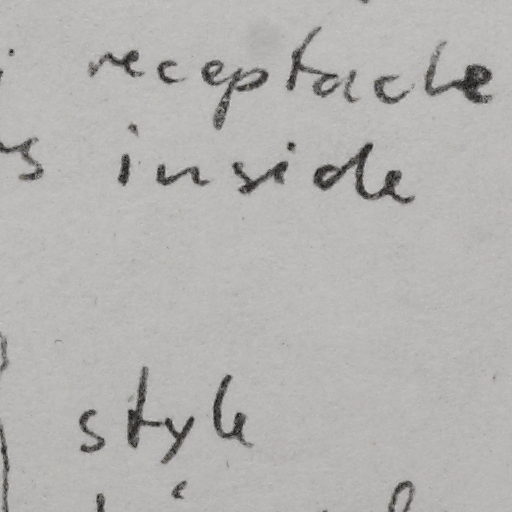 receptacle
inside
style